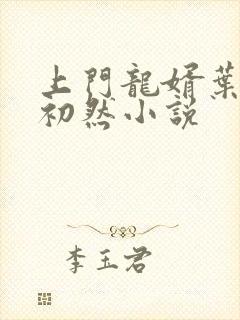 上門龍婿葉
初然小説
李玉君